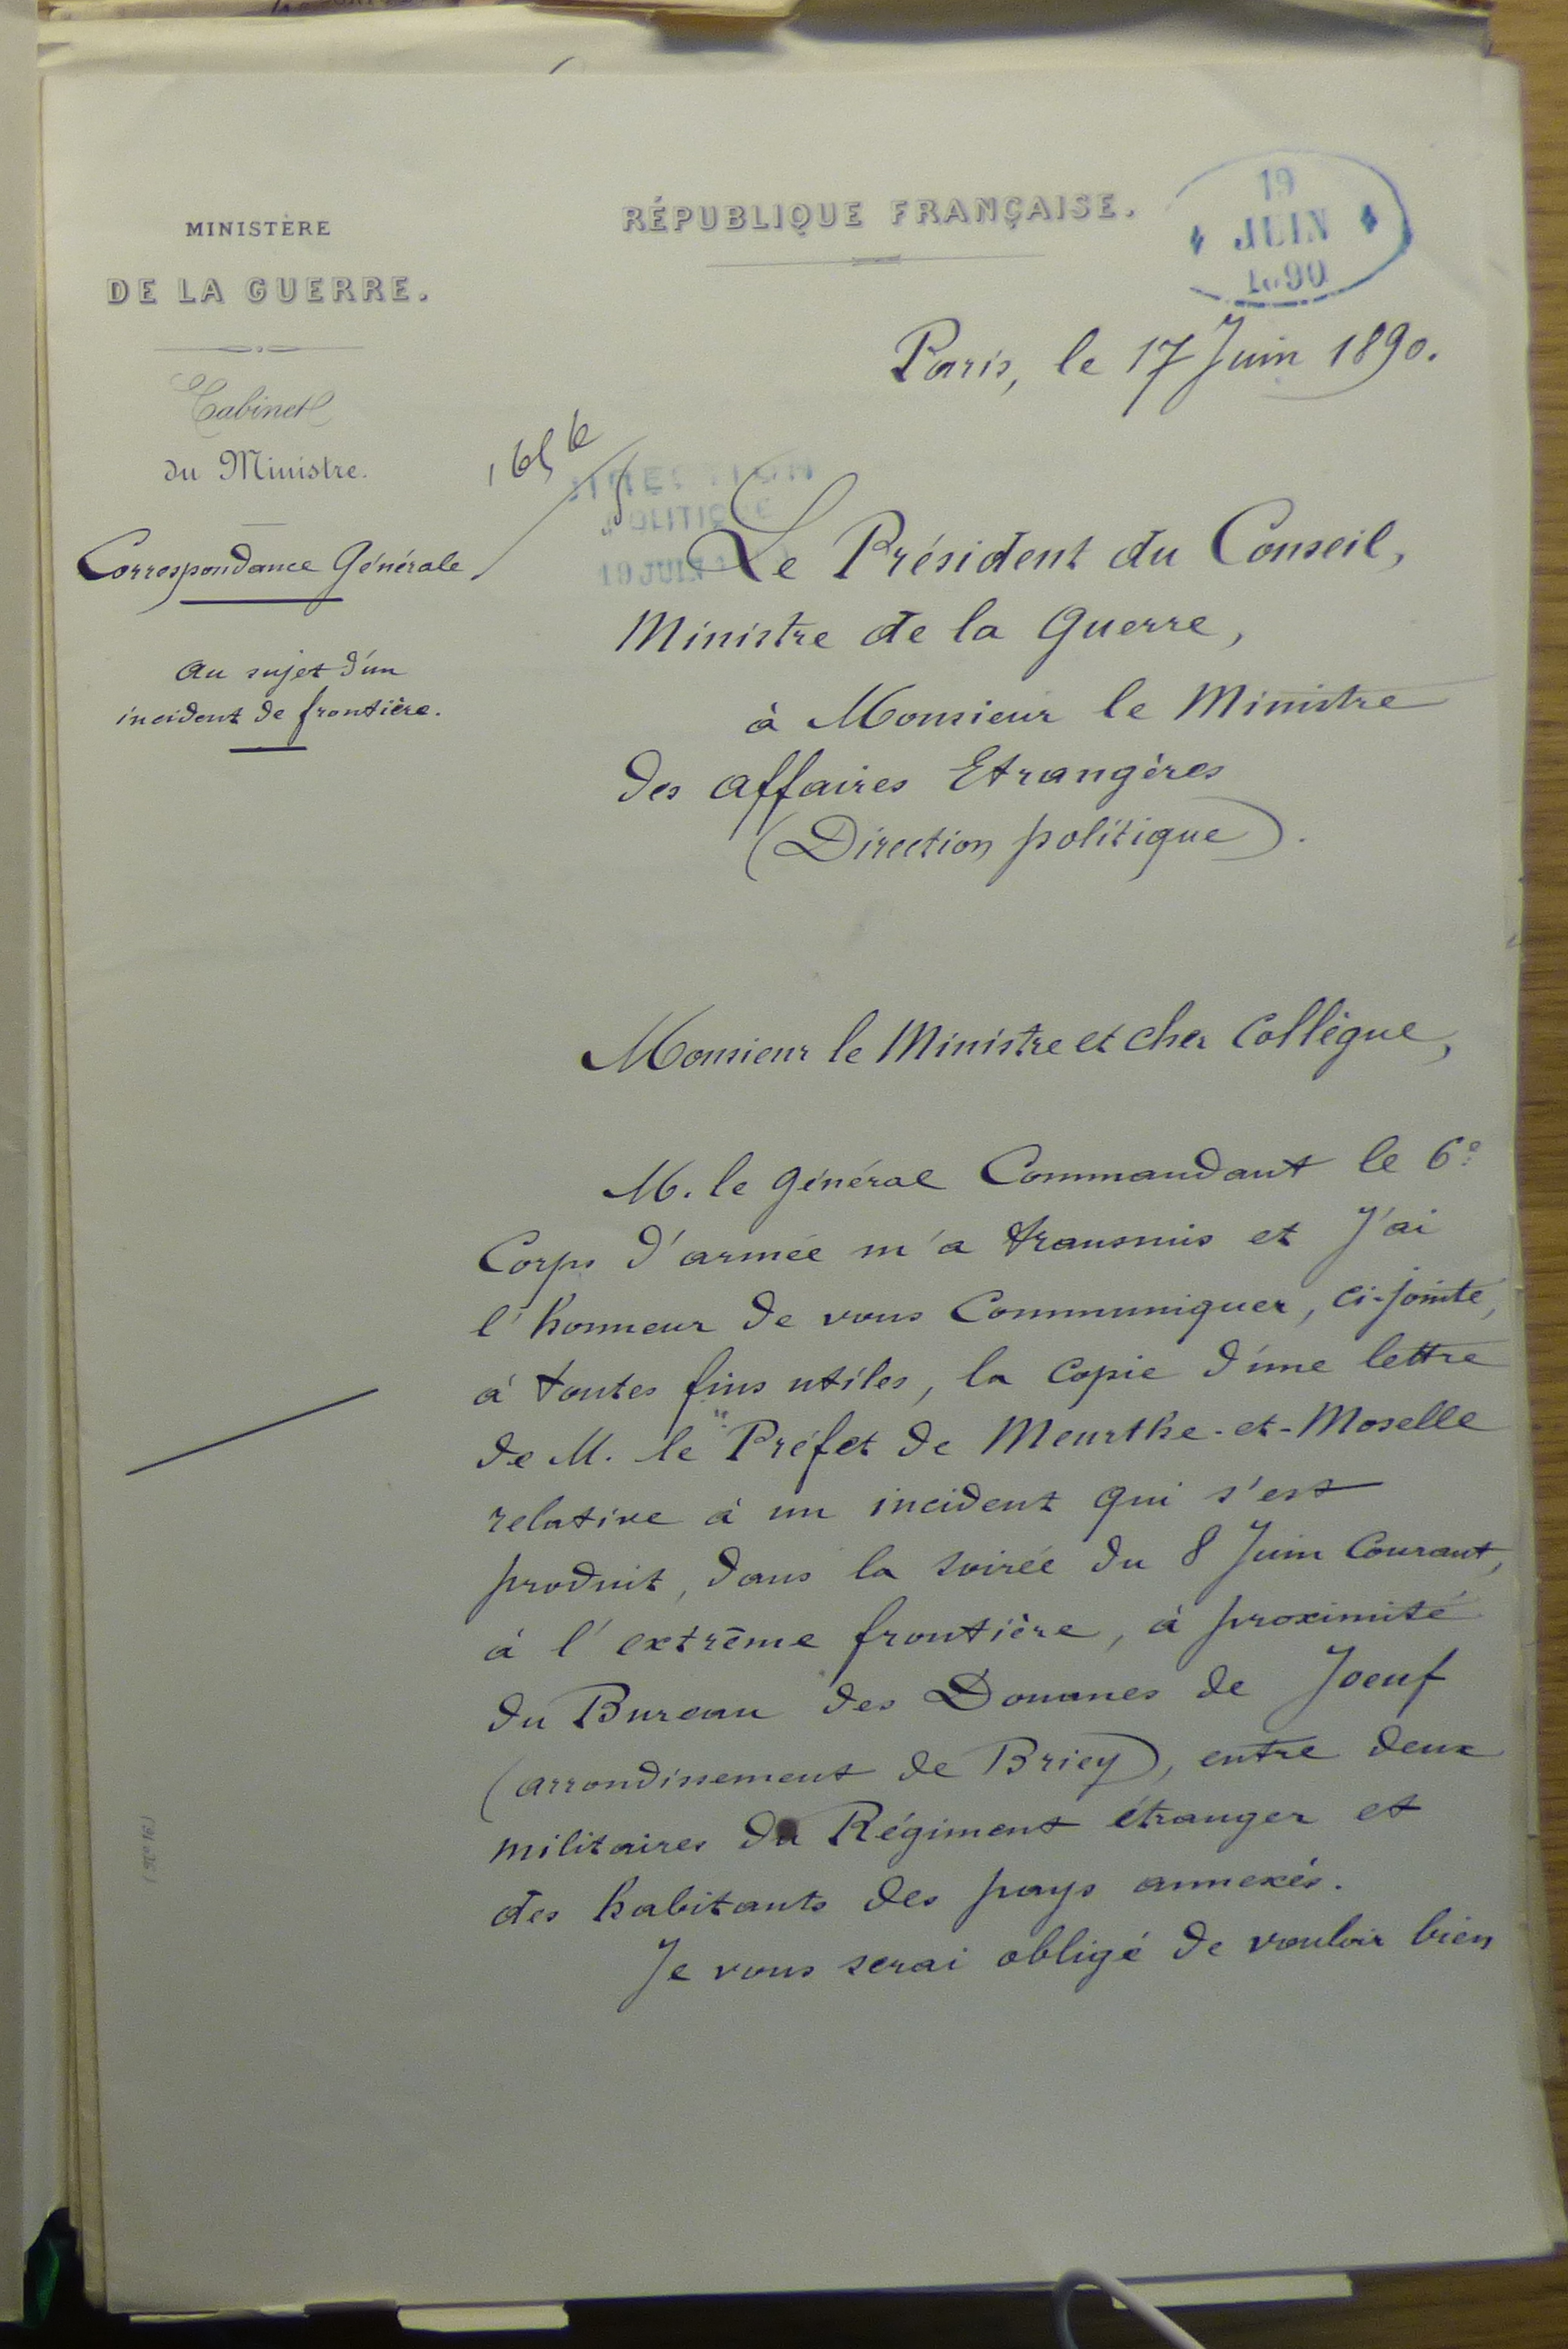 MINISTÈRE
DE LA GUERRE.
Cabinet
du Ministre.
Correspondance Générale
Au sujet d'un
incident de frontière.
RÉPUBLIQUE FRANÇAISE.
19
JUIN
1890
Paris, le 17 Juin 1890.
DIRECTION
POLITIQUE
19 JUIN
Le Président du Conseil,
Ministre de la Guerre,
à Monsieur le Ministre
des Affaires Etrangères
(Direction politique).
Monsieur le Ministre et cher Collègue,
M. le Général Commandant le 6e
Corps d'armée m'a transmis et j'ai
l'honneur de vous Communiquer, ci-jointe,
à toutes fins utiles, la copie d'une lettre
de M. le Préfet de Meurthe-et-Moselle
relative à un incident qui s'est
produit, dans la soirée du 8 Juin Courant,
à l'extrême frontière, à proximité
du Bureau des Douanes de Joeuf
(arrondissement de Briey), entre deux
militaires du Régiment étranger et
des habitants des pays annexés.
Je vous serai obligé de vouloir bien